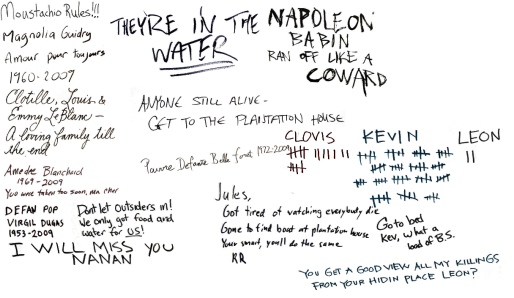 Moustachio Rules!!!
Magnolia Guidry
Amour pour toujours
1960-2009
Clotille, Louis &
Emmy LeBlanc –
A loving family till
the end
Amedee Blanchard
1969-2009
You were taken too soon, mon cher
DEFAN POP
VIRGIL DUGAS
1953-2009
Dont let outsiders in!
We only got food and
water for US!
I WILL MISS YOU
NANAN
THEY'RE IN THE
WATER
NAPOLEON
BABIN
RAN OFF LIKE A
COWARD
ANYONE STILL ALIVE-
GET TO THE PLANTATION HOUSE
Pauvre Defante Belle 1972-2009
CLOVIS
KEVIN
LEON
Jules,
Got tired of watching everybody die
Gone to find boat at plantation house
Your smart, you'll do the same
Go to bed
Kev, what a
load of B.S.
YOU GET A GOOD VIEW ALL MY KILLINGS
FROM YOUR HIDIN PLACE LEON?